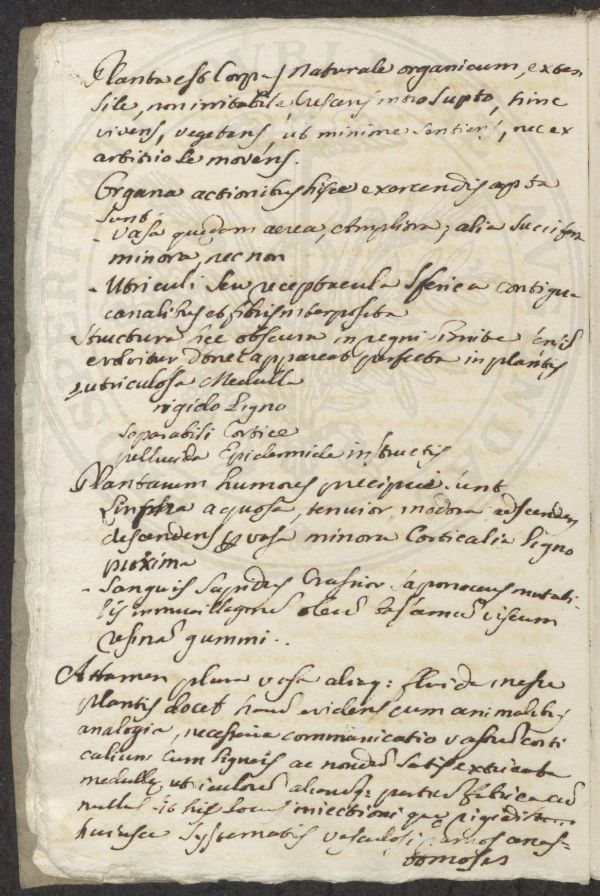 Planta est Corpus naturale organicum, exten
sile, non irritabile Crescens intro supto, hinc
vivens, vegetans, ut minime sentiens, nec ex
arbitrio se movens.
Organa actionibus hisce exercendis apta
sunt
- Vasa quedam aerea, ampliora, alia succifera
minora, nec non
- Utriculi seu receptacula sferica contigua
canalibus et fibris interposita
Structura hec obscura in
evolvitur donec appareat perfecta in plantis
utriculosa Medulla
rigido Ligno
separabili Cortice
pellucida Epidermide instructis
Plantarum humores precipui sunt
Linfha aquosa, tenuior inodora adscendens
descendens per vasa minora Corticalia ligno
proxima
- Sanguis sapidus Crassior saponaceus mutabi
lis in mucilaginem oleum balsamum viscum
resinam gummi..
Attamen plura vasa aliaq: fluida inesse
plantis docet haud evidens cum animalibus
analogia, necessaria communicatio vasorum corti
calium cum ligneis ac nondum satis extricata
medulle utriculorum aliarumq: partium fabrica cum
nullus sit his locus iniectioni que
huiusce systematis vasculosi ramos anas=
tomoses